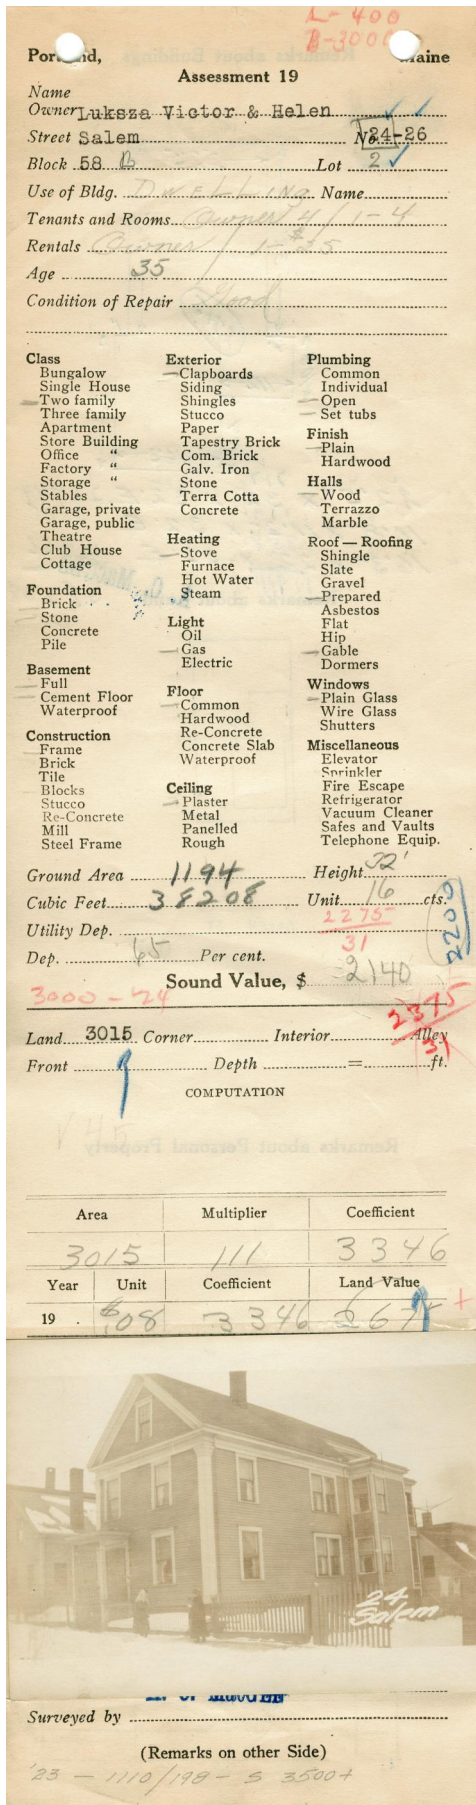 L-400
B-3000
Portland, Maine
Assessment 19
Name
Owner Luksza Victor & Helen
Street Salem No. 24-26
Block 58 B Lot 2
Use of Bldg. DWELLING Name
Tenants and Rooms Owner 4 / 1-4
Rentals Owner / 1-$25
Age 35
Condition of Repair Good
Class
Bungalow
Single House
Two family
Three family
Apartment
Store Building
Office "
Factory "
Storage "
Stables
Garage, private
Garage, public
Theatre
Club House
Cottage
Foundation
Brick
Stone
Concrete
Pile
Basement
Full
Cement Floor
Waterproof
Construction
Frame
Brick
Tile
Blocks
Stucco
Re-Concrete
Mill
Steel Frame
Exterior
Clapboards
Siding
Shingles
Stucco
Paper
Tapestry Brick
Com. Brick
Galv. Iron
Stone
Terra Cotta
Concrete
Heating
Stove
Furnace
Hot Water
Steam
Light
Oil
Gas
Electric
Floor
Common
Hardwood
Re-Concrete
Concrete Slab
Waterproof
Ceiling
Plaster
Metal
Panelled
Rough
Plumbing
Common
Individual
Open
Set tubs
Finish
Plain
Hardwood
Halls
Wood
Terrazzo
Marble
Roof — Roofing
Shingle
Slate
Gravel
Prepared
Asbestos
Flat
Hip
Gable
Dormers
Windows
Plain Glass
Wire Glass
Shutters
Miscellaneous
Elevator
Sprinkler
Fire Escape
Refrigerator
Vacuum Cleaner
Safes and Vaults
Telephone Equip.
Ground Area 1194 Height 32'
Cubic Feet 38208 Unit 16 cts.
2200
Utility Dep. 2275
31
Dep. 65 Per cent.
Sound Value, $ 2140
3000-24
2375
31
Land 3015 Corner Interior Alley
Front Depth = ft.
COMPUTATION
Area Multiplier Coefficient
3015 111 3346
Year Unit Coefficient Land Value
19 . $.08 3346 267
24
Salem
Surveyed by
(Remarks on other Side)
'23 - 1110/198 - S 3500+